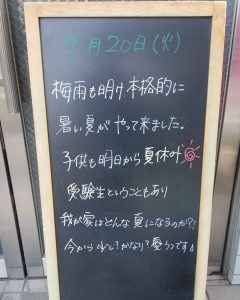 7月20日(火)
梅雨も明け、本格的に
暑い夏がやって来ました。
子供も明日から夏休み
受験生ということもあり
我が家はどんな夏になるのか?!
今から少し?かなり?憂うつです。